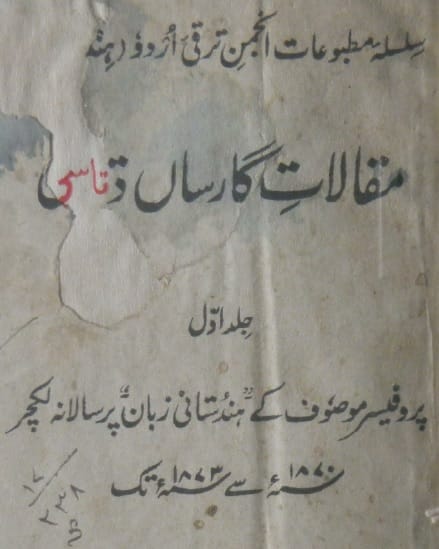 سلسلۂ مطبوعات انجمنِ ترقیٔ اُردوٗ (ہند
مقالاتِ گارساں دتاسی
جلد اوّل
پروفیسر موصوٗف کے "ہندُستانی زبان" پر سالانہ لکچر
۱۸۷۰ء سے ۱۸۷۳ء تک
۱۲
۲۳۸